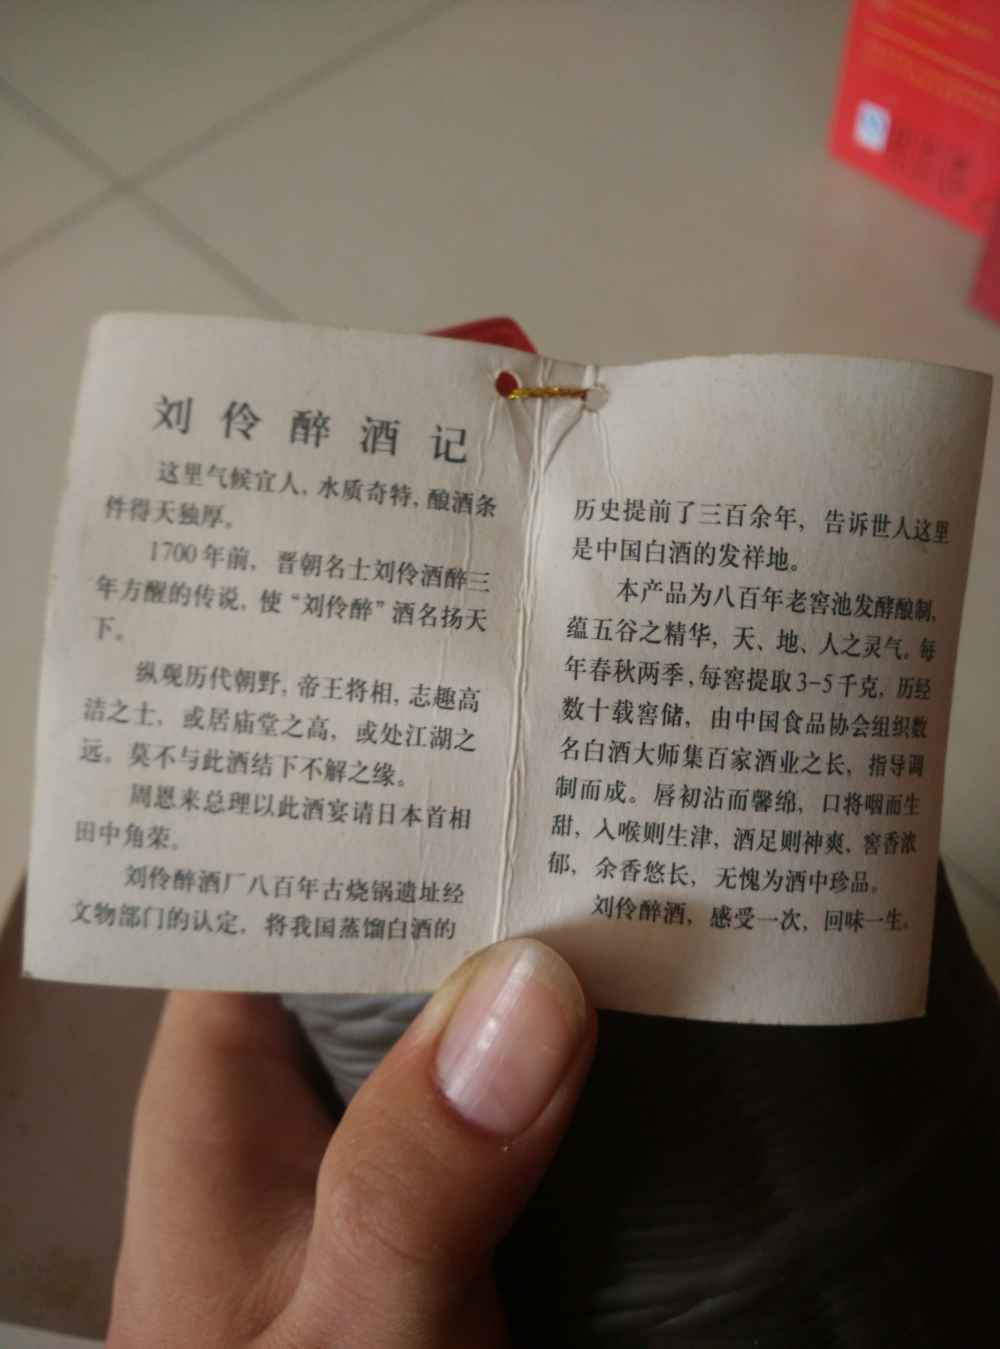 刘伶醉酒记
这里气候宜人，水质奇特，酿酒条
件得天独厚。
1700年前，晋朝名士刘伶酒醉三
年方醒的传说，使“刘伶醉”酒名扬天
下。
纵观历代朝野，帝王将相，志趣高
洁之士，或居庙堂之高，或处江湖之
远。莫不与此酒结下不解之缘。
周恩来总理以此酒宴请日本首相
田中角荣。
刘伶醉酒厂八百年古烧锅遗址经
文物部门的认定，将我国蒸馏白酒的
历史提前了三百余年，告诉世人这里
是中国白酒的发祥地。
本产品为八百年老窖池发酵酿制，
蕴五谷之精华，天、地、人之灵气。每
年春秋两季，每窖提取3-5千克，历经
数十载窖储，由中国食品协会组织数
名白酒大师集百家酒业之长，指导调
制而成。唇初沾而馨绵，口将咽而生
甜，入喉则生津，酒足则神爽、窖香浓
郁，余香悠长，无愧为酒中珍品。
刘伶醉酒，感受一次，回味一生。